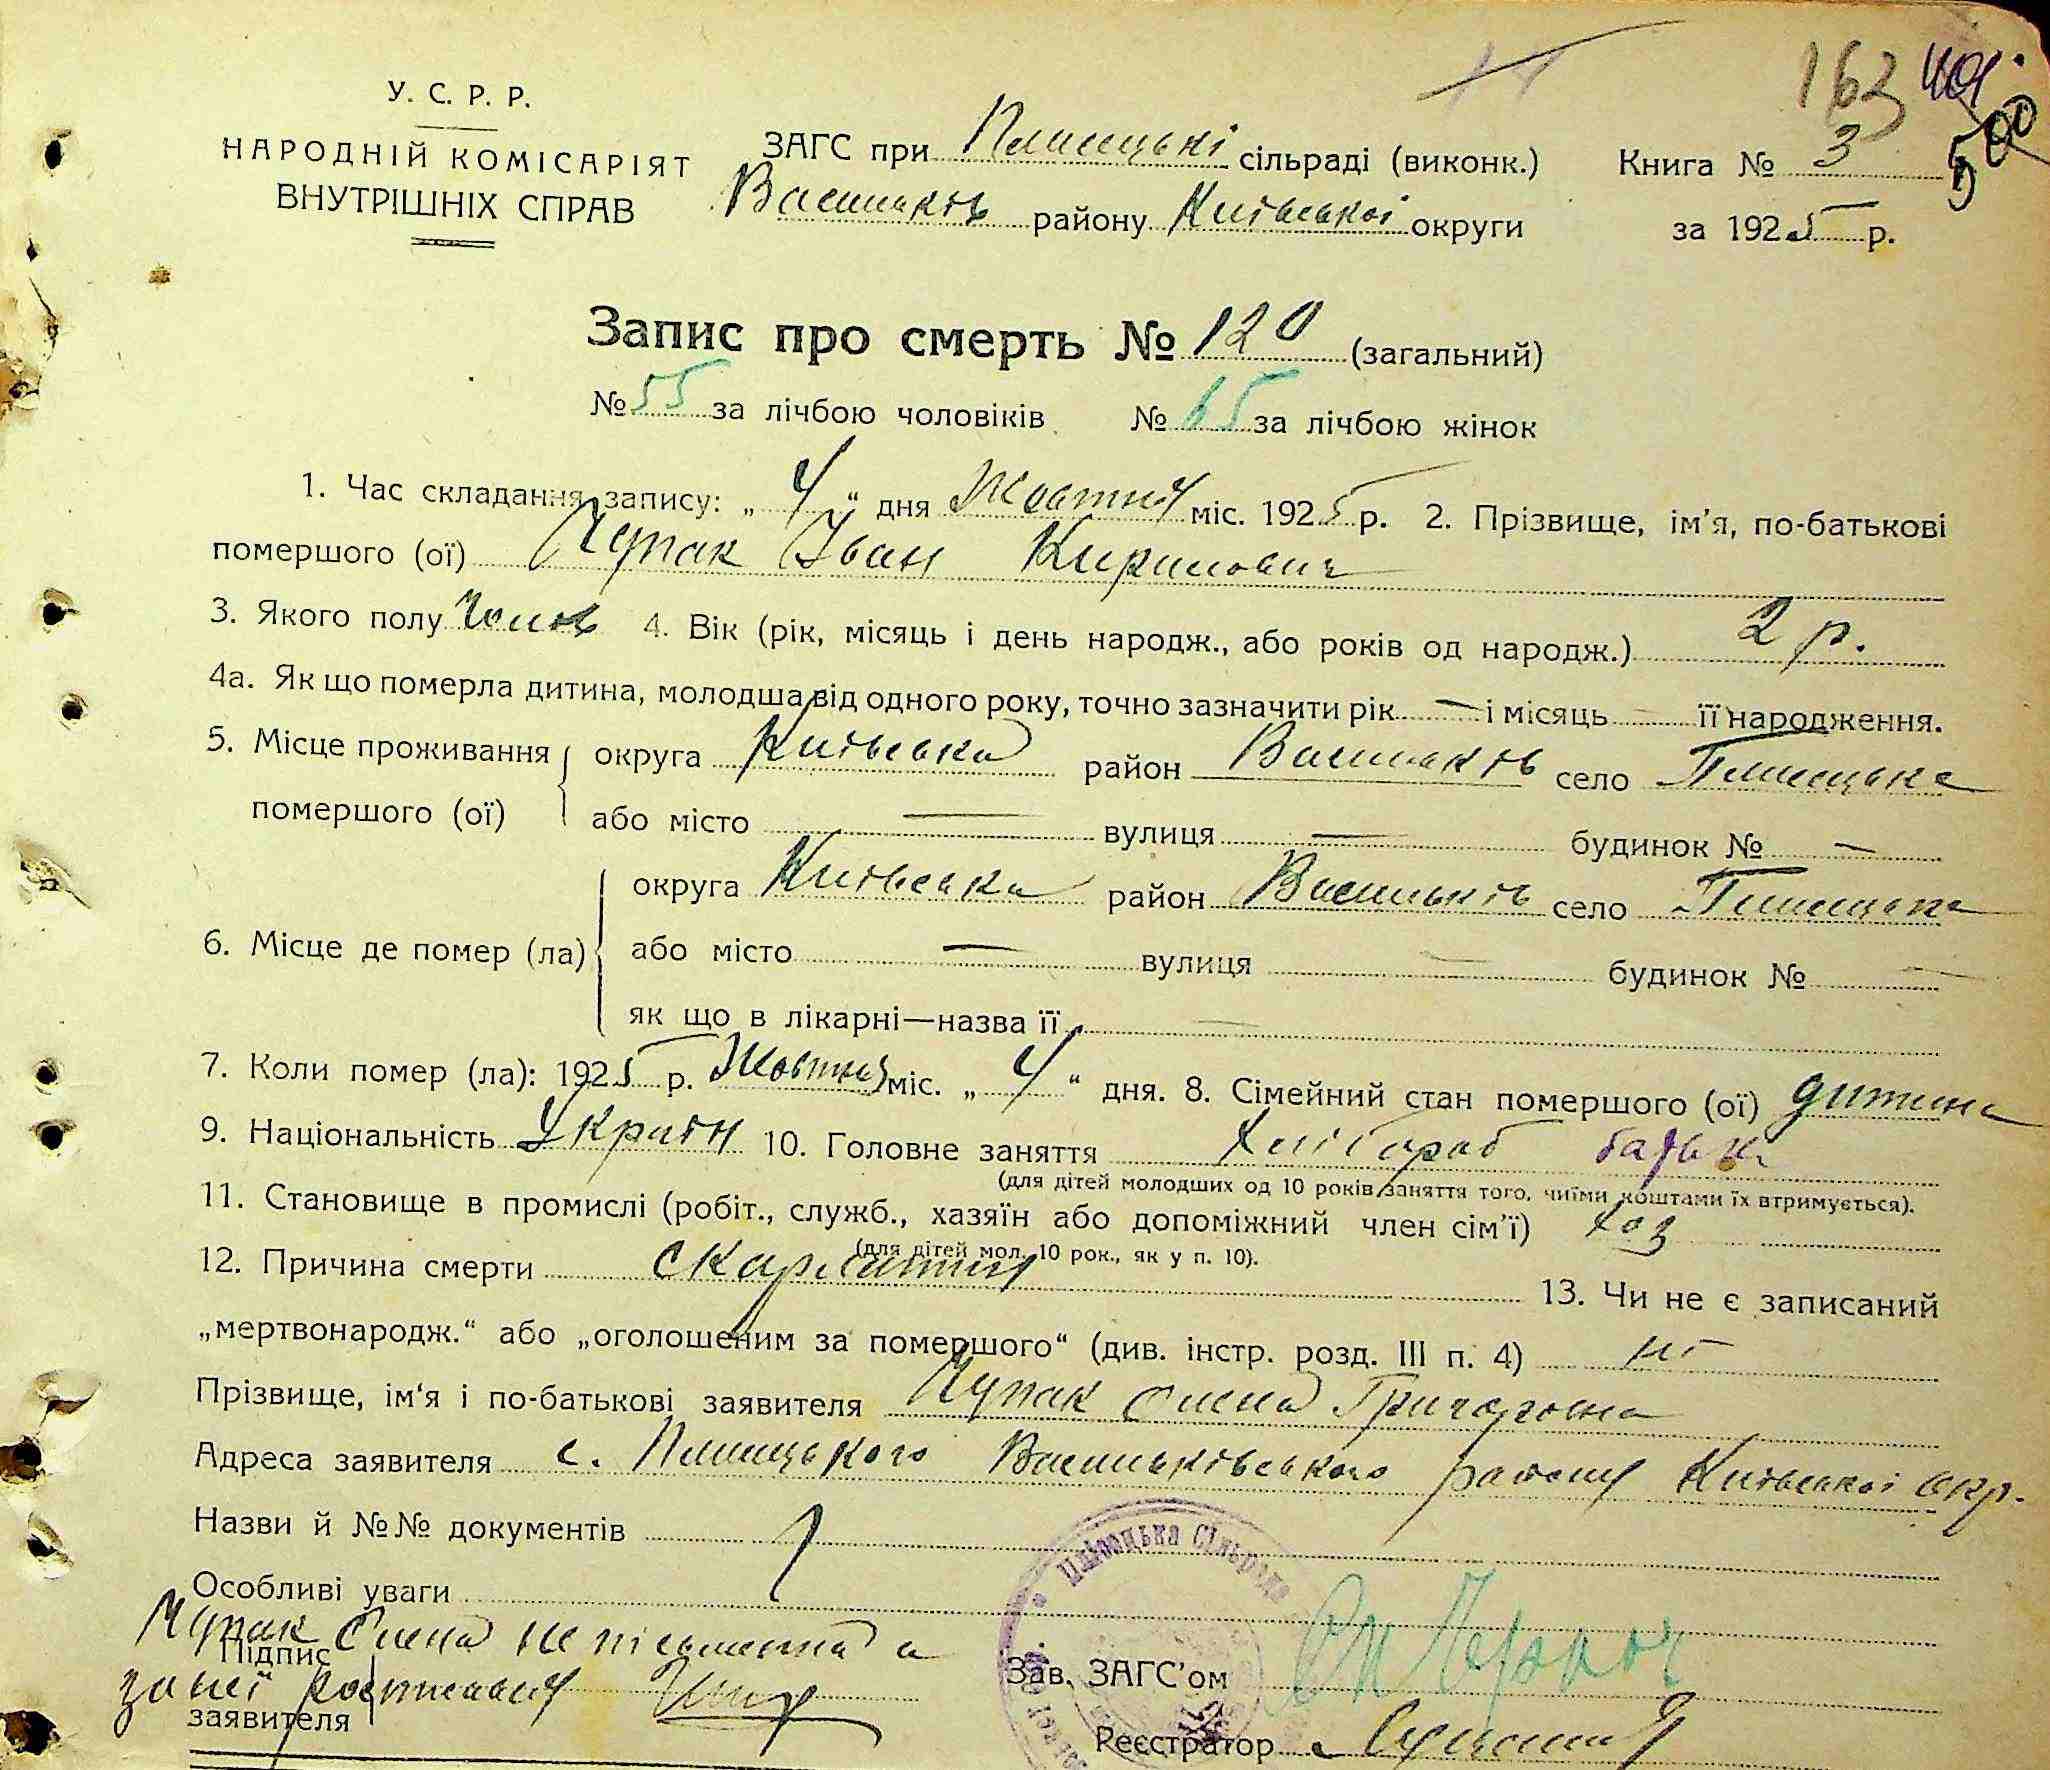 163
500
У. С. Р. Р.
НАРОДНІЙ КОМІСАРІЯТ
ВНУТРІШНІХ СПРАВ
ЗАГС при Плисецькі сільраді (виконк.) Книга № 3
Васильків району Київської округи за 1925 р.
Запис про смерть № 120 (загальний)
№ 55 за лічбою чоловіків № 65 за лічбою жінок
1. Час складання запису: „ 4 “ дня Жовтня міс. 1925 р. 2. Прізвище, ім'я, по-батькові
помершого (ої) Іван Кирилович
3. Якого полу чолов 4. Вік (рік, місяць і день народж., або років од народж.) 2 р.
4а. Як що померла дитина, молодша від одного року, точно зазначити рік — і місяць — її народження.
5. Місце проживання округа Київська район Васильків село Плисецьке
помершого (ої) або місто — вулиця — будинок № —
округа Київська район Васильків село Плисецьке
6. Місце де помер (ла) або місто — вулиця — будинок № —
як що в лікарні—назва її —
7. Коли помер (ла): 1925 р. Жовтня міс. „ 4 “ дня. 8. Сімейний стан помершого (ої) дитина
9. Національність Україн 10. Головне заняття Хлібороб батько
(для дітей молодших од 10 років заняття того, чиїми коштами їх втримується).
11. Становище в промислі (робіт., служб., хазяїн або допоміжний член сім'ї) хоз
(для дітей мол. 10 рок., як у п. 10).
12. Причина смерти скарлатина 13. Чи не є записаний
„мертвонародж.“ або „оголошеним за помершого“ (див. інстр. розд. III п. 4) ні
Прізвище, ім'я і по-батькові заявителя Олена Григоровна
Адреса заявителя с. Плисецького Васильківського району Київської окр.
Назви й №№ документів
Особливі уваги
Олена не письменна а
Підпис
за неї росписався
заявителя
Плісецька Сільрада
Зав. ЗАГС'ом
Реєстратор